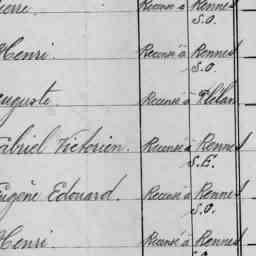 Recensé à Rennes
S.O.
Henri. Recensé à Rennes
S.O.
Auguste. Recensé à Plélan
Gabriel Victorien. Recensé à Rennes
S.E.
Eugène Edouard. Recensé à Rennes
S.O.
Henri Recensé à Rennes